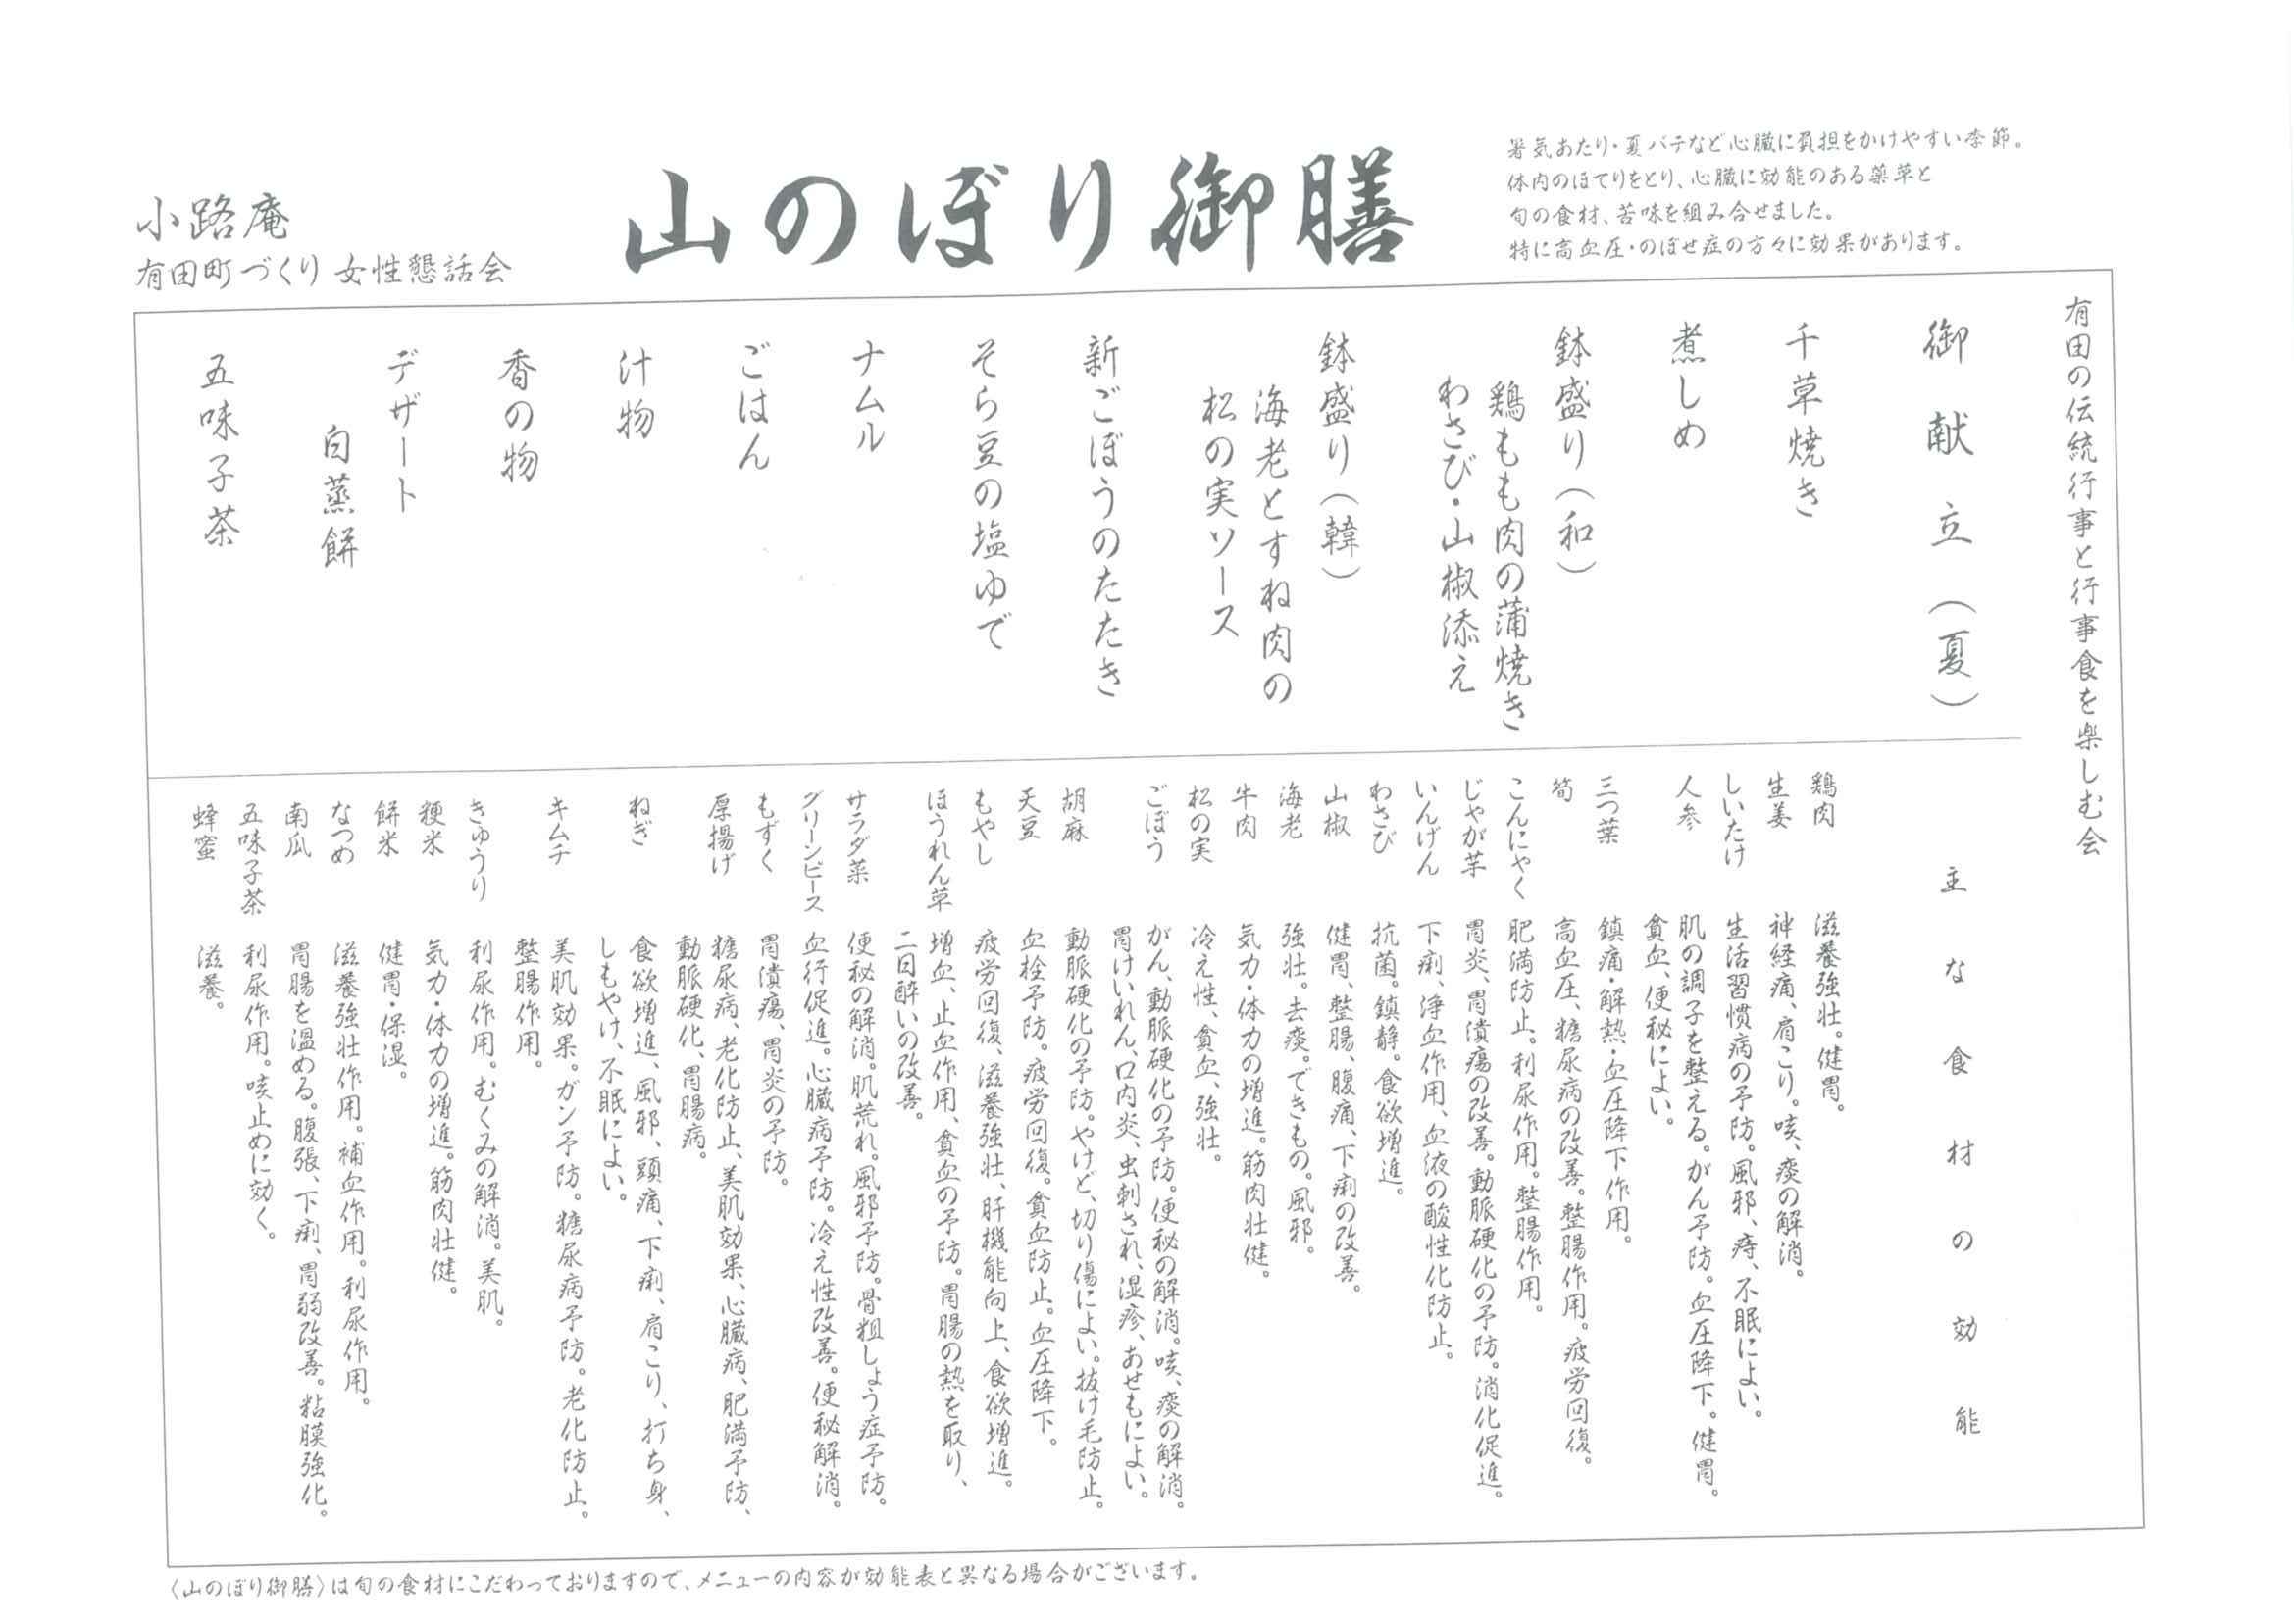 暑気あたり・夏バテなど心臓に負担をかけやすい季節。
体内のほてりをとり、心臓に効能のある薬草と
旬の食材、苦味を組み合せました。
特に高血圧・のぼせ症の方々に効果があります。
山のぼり御膳
小路庵
有田町づくり女性懇話会
有田の伝統行事と行事食を楽しむ会
御献立(夏)
千草焼き
煮しめ
鉢盛り(和)
鶏もも肉の蒲焼き
わさび・山椒添え
鉢盛り(韓)
海老とすね肉の
松の実ソース
新ごぼうのたたき
そら豆の塩ゆで
ナムル
ごはん
汁物
香の物
デザート
白蒸餅
五味子茶
主な食材の効能
鶏肉 滋養強壮。健胃。
生姜 神経痛、肩こり。咳、痰の解消。
しいたけ 生活習慣病の予防。風邪、痔、不眠によい。
人参 肌の調子を整える。がん予防。血圧降下。健胃。
貧血、便秘によい。
三つ葉 鎮痛・解熱・血圧降下作用。
筍 高血圧、糖尿病の改善。整腸作用。疲労回復。
こんにゃく 肥満防止。利尿作用。整腸作用。
じゃが芋 胃炎、胃潰瘍の改善。動脈硬化の予防。消化促進。
いんげん 下痢、浄血作用、血液の酸性化防止。
わさび 抗菌。鎮静。食欲増進。
山椒 健胃、整腸、腹痛、下痢の改善。
海老 強壮。去痰。できもの。風邪。
牛肉 気力・体力の増進。筋肉壮健。
松の実 冷え性、貧血、強壮。
ごぼう がん、動脈硬化の予防。便秘の解消。咳、痰の解消。
胃けいれん、口内炎、虫刺され、湿疹、あせもによい。
胡麻 動脈硬化の予防。やけど、切り傷によい。抜け毛防止。
天豆 血栓予防。疲労回復。貧血防止。血圧降下。
もやし 疲労回復、滋養強壮、肝機能向上、食欲増進。
ほうれん草 増血、止血作用、貧血の予防。胃腸の熱を取り、
二日酔いの改善。
サラダ菜 便秘の解消。肌荒れ。風邪予防。骨粗しょう症予防。
グリーンピース 血行促進。心臓病予防。冷え性改善。便秘解消。
もずく 胃潰瘍、胃炎の予防。
厚揚げ 糖尿病、老化防止、美肌効果、心臓病、肥満予防、
動脈硬化、胃腸病。
ねぎ 食欲増進、風邪、頭痛、下痢、肩こり、打ち身、
しもやけ、不眠によい。
キムチ 美肌効果。ガン予防。糖尿病予防。老化防止。
整腸作用。
きゅうり 利尿作用。むくみの解消。美肌。
粳米 気力・体力の増進。筋肉壮健。
餅米 健胃・保湿。
なつめ 滋養強壮作用。補血作用。利尿作用。
南瓜 胃腸を温める。腹張、下痢、胃弱改善。粘膜強化。
五味子茶 利尿作用。咳止めに効く。
蜂蜜 滋養。
〈山のぼり御膳〉は旬の食材にこだわっておりますので、メニューの内容が効能表と異なる場合がございます。